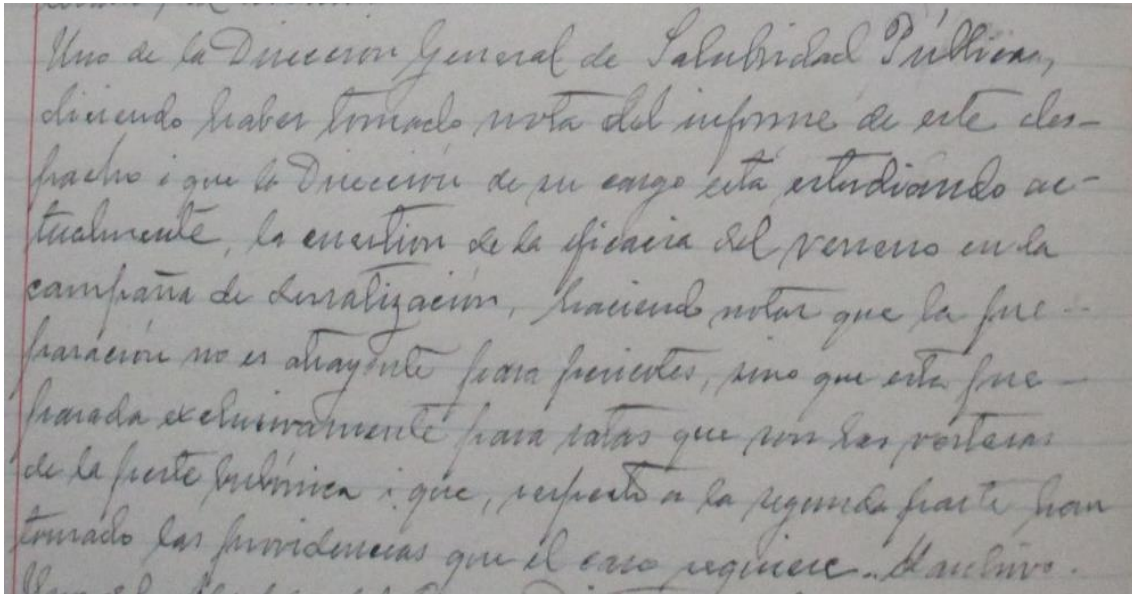 Uno de la Dirección General de Salubridad Pública,
diciendo haber tomado nota del informe de este des-
pacho i que la Dirección de su cargo está estudiando ac-
tualmente, la cuestion de la eficacia del veneno en la
campaña de desratización, haciendo notar que la pre-
paración no es atrayente para, sino que está pre-
parada exclusivamente para ratas que son las
de la peste bubónica i que, respecto a la segunda parte han
tomado las providencias que el caso requiere.. Al archivo.
Uno del